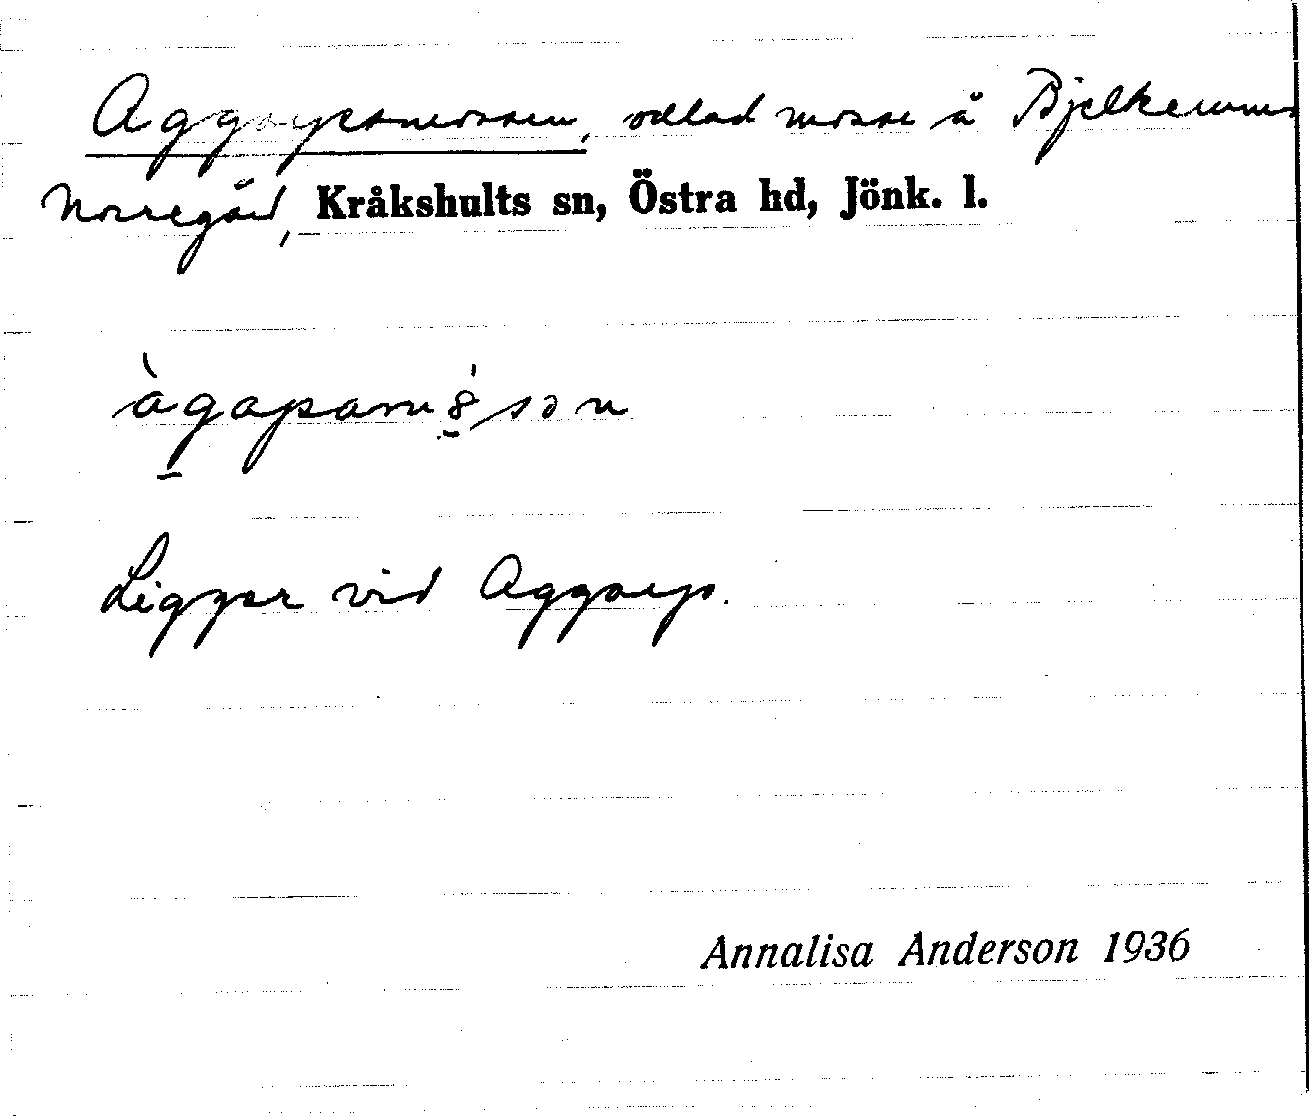 Aggarpsmossen, odlad mosse å Bjelkerums
Norregård, Kråkshults sn, Östra hd, Jönk. l.
Ligger vid Aggarp.
Annalisa Anderson 1936